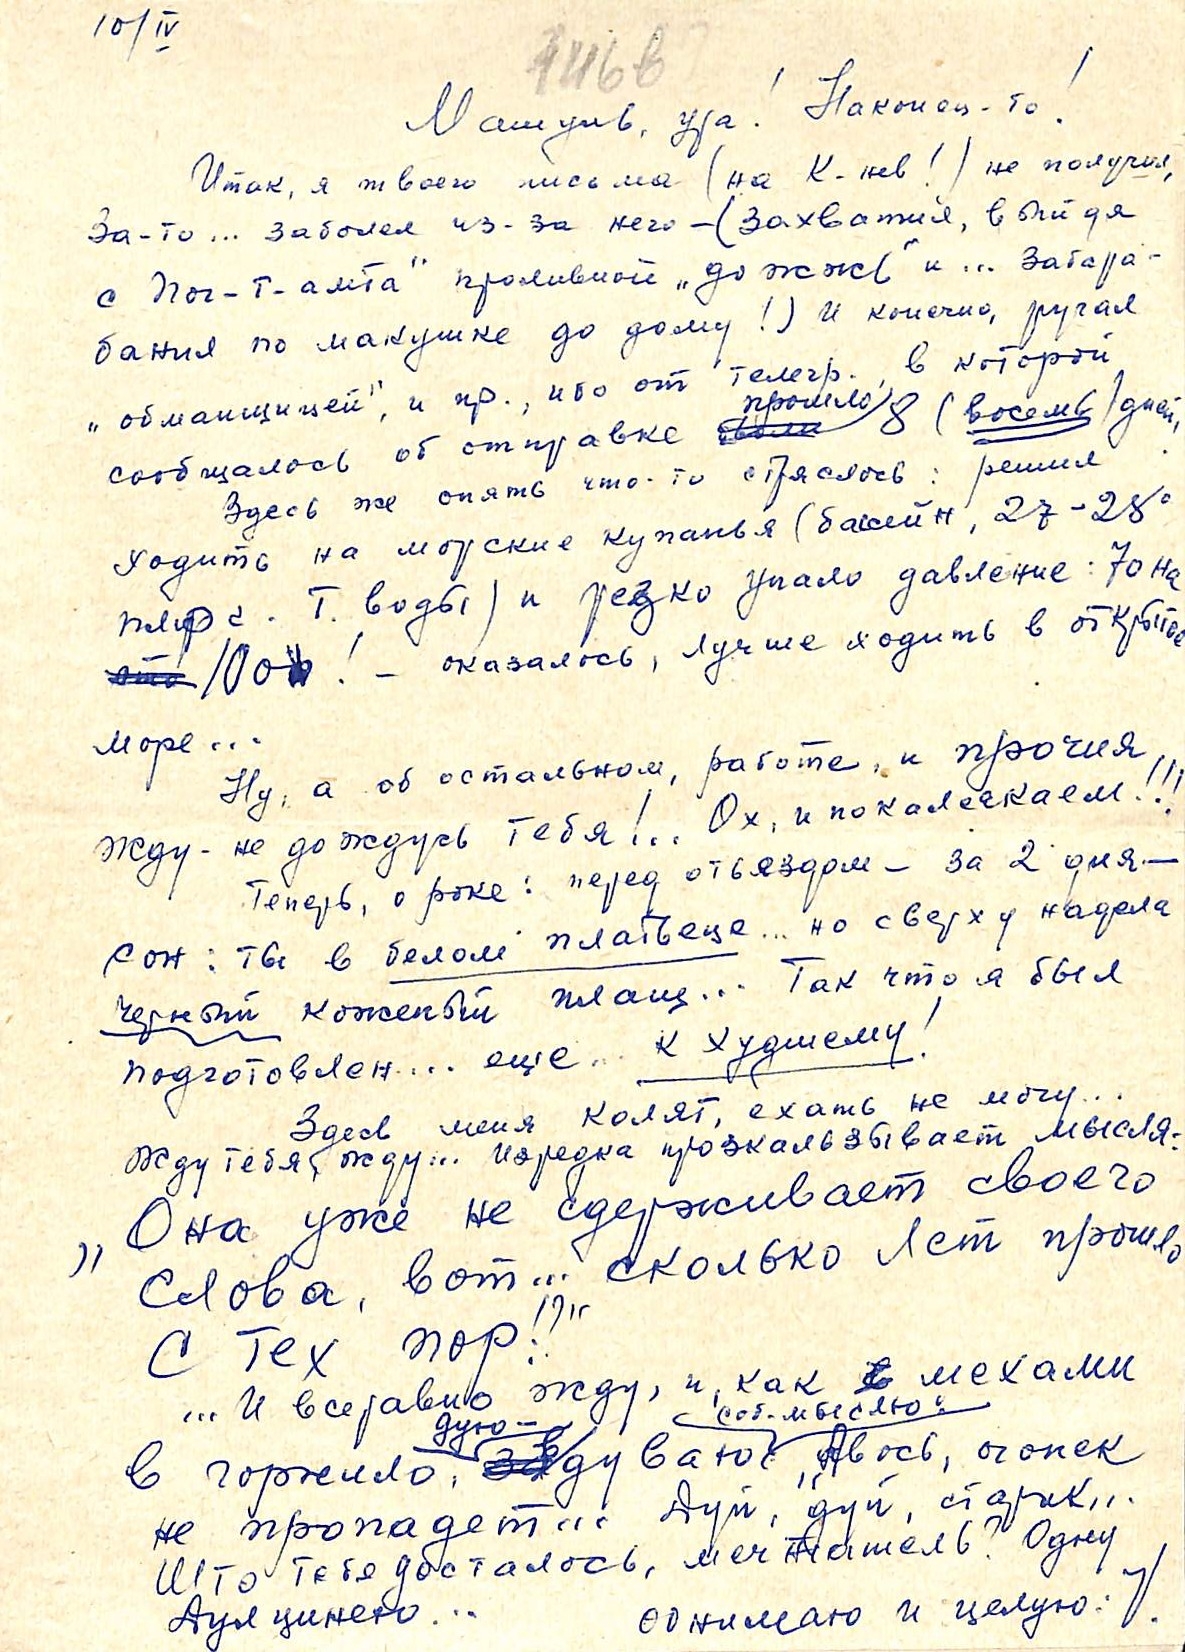 10/IV
146в
Машуль, ура! Наконец-то!
Итак, я твоего письма (на К-нев!) не получил,
За-то... заболел из-за него – (захватил, выйдя
с Поч-т-амта" проливной „дожжь" и... забара-
банил по макушке до дому!) И конечно, ругал
„обманщицей", и пр., ибо от телегр., в которой
сообщалось об отправке прошло 8 (восемь) дней,
Здесь же опять что-то стряслось: решил
ходить на морские купанья (бассейн, 27-28°
Т. воды) и резко упало давление: 70 на
100! – оказалось, лучше ходить в открытое
море...
Ну, а об остальном, работе, и прочия,
жду – не дождусь тебя!... Ох, и покалякаем!!!
Теперь, о роке: перед отъездом – за 2 дня –
сон: ты в белом платьеце... но сверху надела
черный кожаный плащ... Так что я был
подготовлен.... еще... к худшему!
Здесь меня колят, ехать не могу...
Жду тебя, жду... Изредка проскальзывает мысля:
„Она уже не сдерживает своего
слова, вот... сколько лет прошло
с тех пор!?"
... И всеравно жду, и, как мехами
дую – соб-мыслю:
в горнило, дуваю: „Авось, огонек
не пропадет... Дуй, дуй, старик...
Што тебе досталось, мечтатель? Одну
Дулцинею... обнимаю и целую: